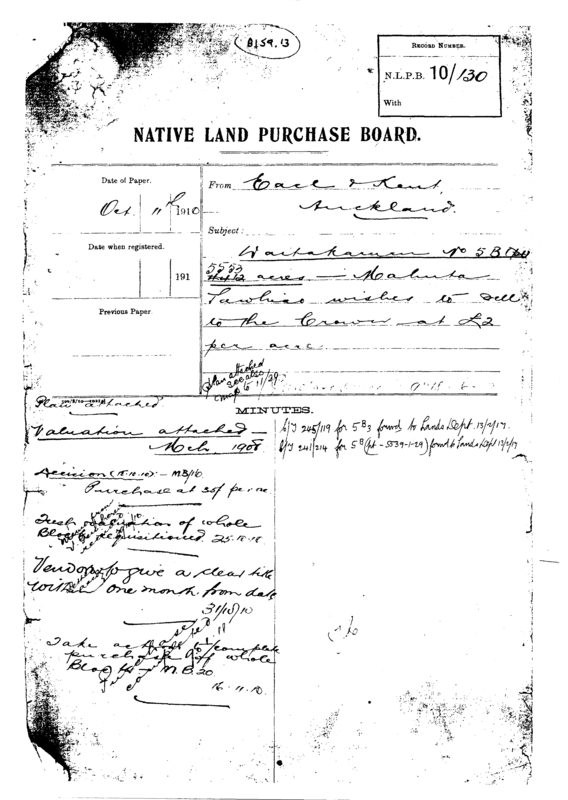 B159.13
RECORD NUMBER.
N.L.P.B. 10/130
With
NATIVE LAND PURCHASE BOARD.
Date of Paper.
Oct. 11th 1910
From Earl & Kent,
Auckland.
Subject:
Waitakaruru No 5B
Date when registered.
191
5553
acres — Mahuta
Tawhiao wishes to sell
to the Crown at £2
per acre.
Previous Paper
Plan attached
see also
map 6 11/29
Plan attached
MINUTES.
Valuation attached —
Mch. 1908
Decision (18.10.10) :- MB/16
Purchase at 30/- per acre
Fresh valuation of whole
Block requisitioned. 25.10.10.
Vendors to give a clear title
within one month from date
31/10/10
Take action to complete
purchase of whole
Block M.B. 20
16.11.10.
C/T 245/119 for 5B3 forwd to Lands & Sept. 13/2/17.
C/T 241/214 for 5B (pt - 5539-1-29) forwd to Lands & Sept 13/2/17